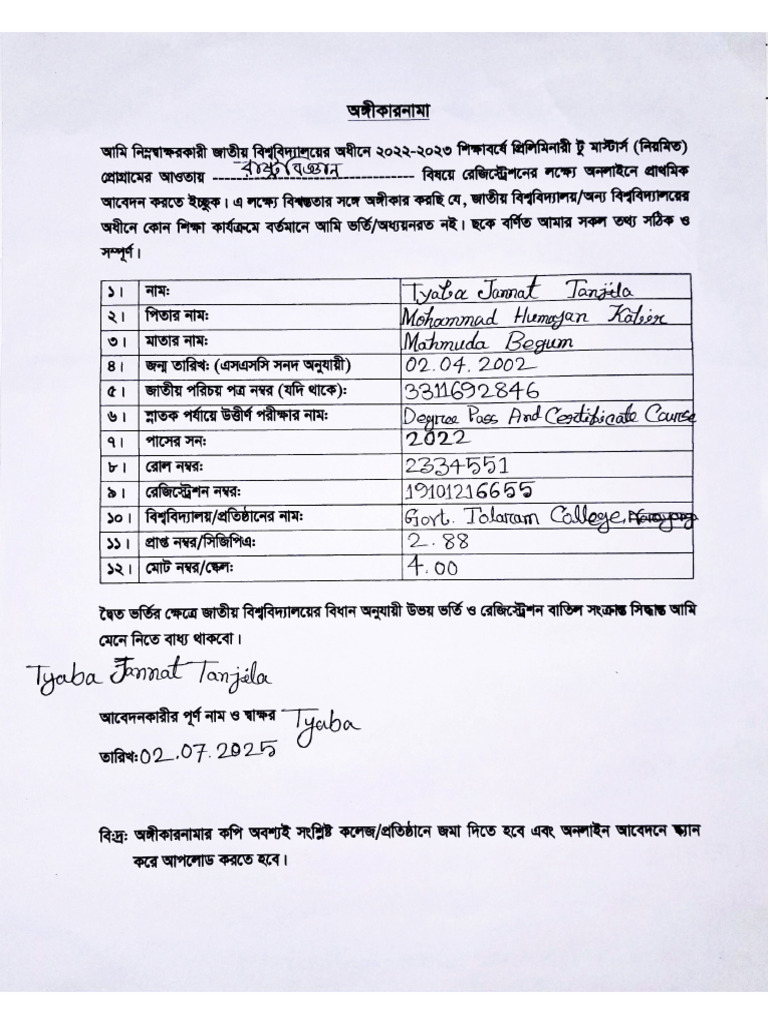 অঙ্গীকারনামা
আমি নিম্নস্বাক্ষরকারী জাতীয় বিশ্ববিদ্যালয়ের অধীনে ২০২২-২০২৩ শিক্ষাবর্ষে প্রিলিমিনারী টু মাস্টার্স (নিয়মিত)
প্রোগ্রামের আওতায় রাষ্ট্রবিজ্ঞান বিষয়ে রেজিস্ট্রেশনের লক্ষ্যে অনলাইনে প্রাথমিক
আবেদন করতে ইচ্ছুক। এ লক্ষ্যে বিশ্বস্ততার সঙ্গে অঙ্গীকার করছি যে, জাতীয় বিশ্ববিদ্যালয়/অন্য বিশ্ববিদ্যালয়ের
অধীনে কোন শিক্ষা কার্যক্রমে বর্তমানে আমি ভর্তি/অধ্যয়নরত নই। ছকে বর্ণিত আমার সকল তথ্য সঠিক ও
সম্পূর্ণ।
১। নাম: Tyaba Jannat Tanjila
২। পিতার নাম: Mohammad Humayan Kabir
৩। মাতার নাম: Mahmuda Begum
৪। জন্ম তারিখ: (এসএসসি সনদ অনুযায়ী) 02.04.2002
৫। জাতীয় পরিচয় পত্র নম্বর (যদি থাকে): 3311692846
৬। স্নাতক পর্যায়ে উত্তীর্ণ পরীক্ষার নাম: Degree Pass And Certificate Course
৭। পাসের সন: 2022
৮। রোল নম্বর: 2334551
৯। রেজিস্ট্রেশন নম্বর: 19101216655
১০। বিশ্ববিদ্যালয়/প্রতিষ্ঠানের নাম: Govt. Tolaram College,
১১। প্রাপ্ত নম্বর/সিজিপিএ: 2.88
১২। মোট নম্বর/স্কেল: 4.00
দ্বৈত ভর্তির ক্ষেত্রে জাতীয় বিশ্ববিদ্যালয়ের বিধান অনুযায়ী উভয় ভর্তি ও রেজিস্ট্রেশন বাতিল সংক্রান্ত সিদ্ধান্ত আমি
মেনে নিতে বাধ্য থাকবো।
Tyaba Jannat Tanjila
আবেদনকারীর পূর্ণ নাম ও স্বাক্ষর Tyaba
তারিখ: 02.07.2025
বি:দ্র: অঙ্গীকারনামার কপি অবশ্যই সংশ্লিষ্ট কলেজ/প্রতিষ্ঠানে জমা দিতে হবে এবং অনলাইন আবেদনে স্ক্যান
করে আপলোড করতে হবে।